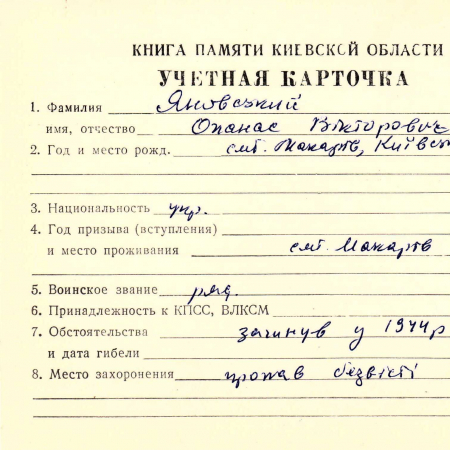 КНИГА ПАМЯТИ КИЕВСКОЙ ОБЛАСТИ
УЧЕТНАЯ КАРТОЧКА
1. Фамилия Яновський
имя, отчество Опанас Вікторович
2. Год и место рожд. смт. Макарів, Київсь
3. Национальность укр.
4. Год призыва (вступления)
и место проживания смт. Макарів
5. Воинское звание ряд.
6. Принадлежность к КПСС, ВЛКСМ
7. Обстоятельства загинув у 1944р
и дата гибели
8. Место захоронения пропав безвісті